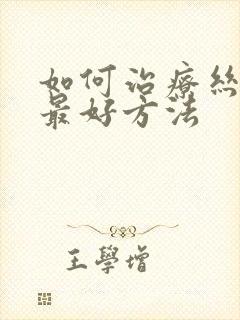 如何治療絲
最好方法
王學增